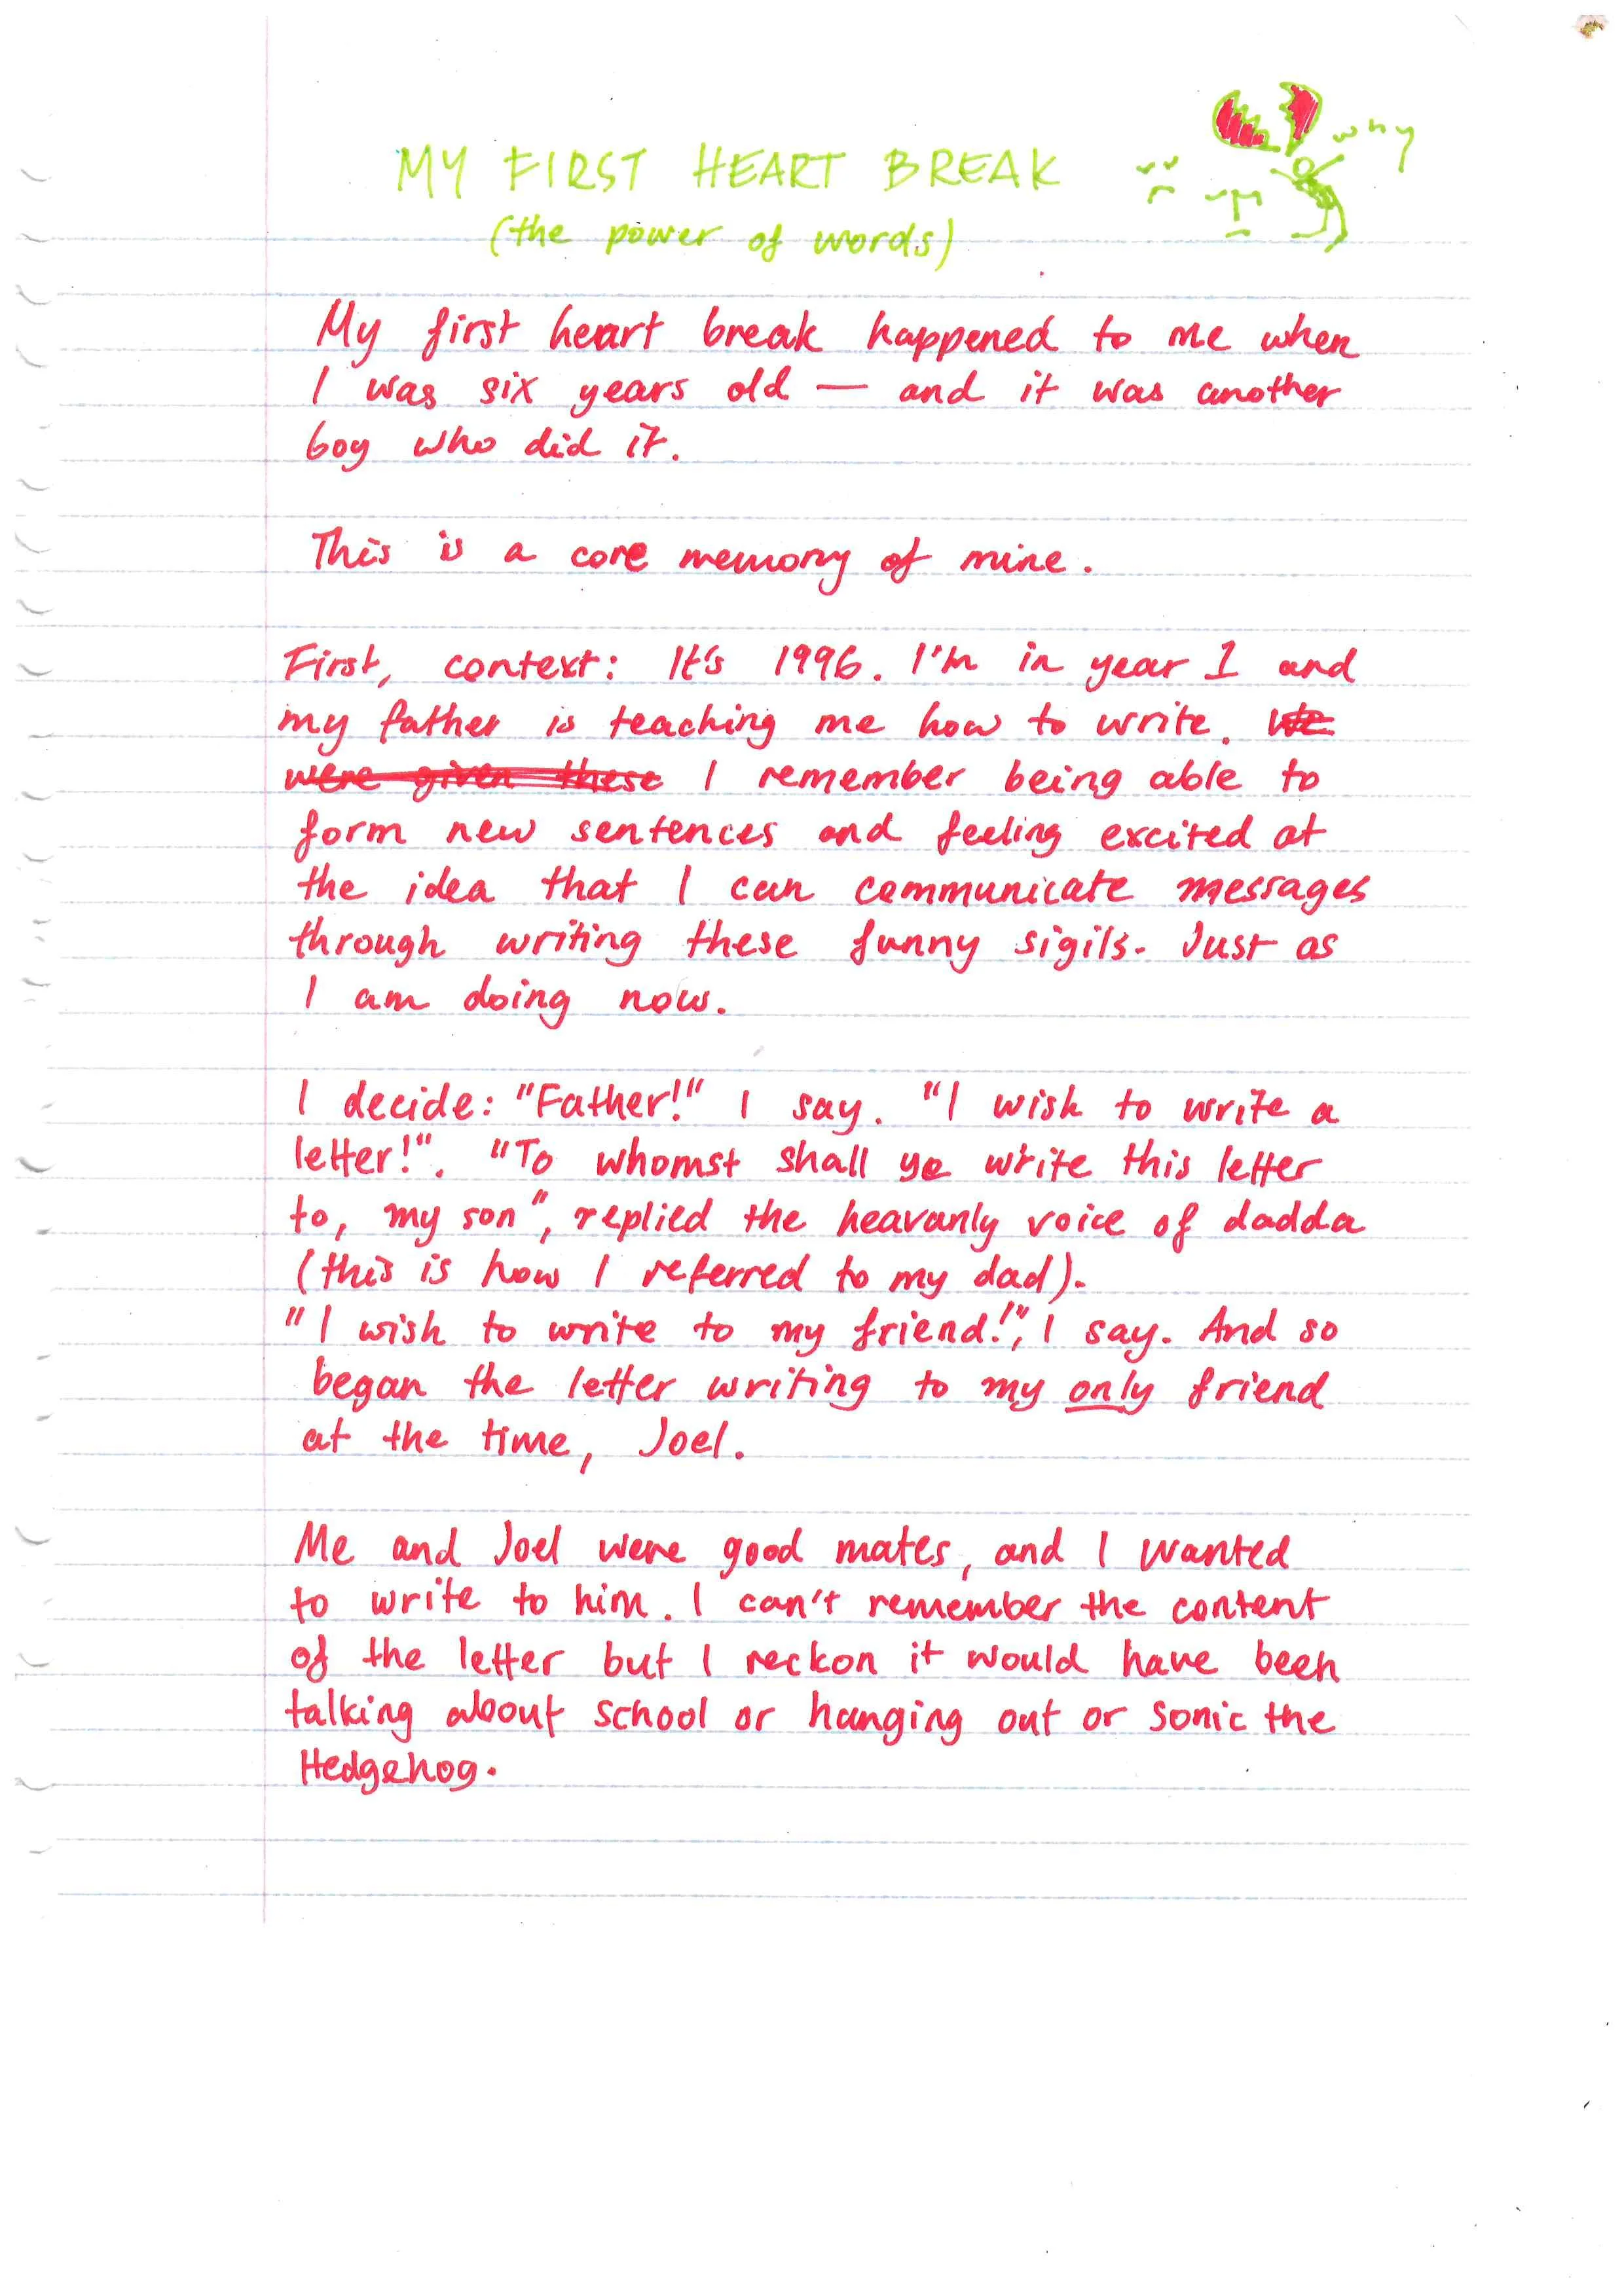 MY FIRST HEART BREAK
why
(the power of words)
My first heart break happened to me when
I was six years old — and it was another
boy who did it.
This is a core memory of mine.
First, context: It's 1996. I'm in year 1 and
my father is teaching me how to write. We
were given these I remember being able to
form new sentences and feeling excited at
the idea that I can communicate messages
through writing these funny sigils. Just as
I am doing now.
I decide: "Father!" I say. "I wish to write a
letter!". "To whomst shall ye write this letter
to, my son", replied the heavanly voice of dadda
(this is how I referred to my dad).
"I wish to write to my friend!", I say. And so
began the letter writing to my only friend
at the time, Joel.
Me and Joel were good mates, and I wanted
to write to him. I can't remember the content
of the letter but I reckon it would have been
talking about school or hanging out or sonic the
Hedgehog.